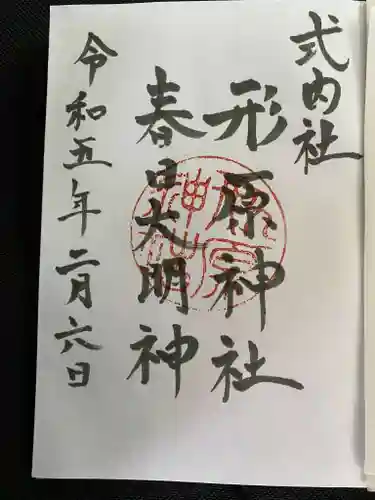 式内社
形原神社
春日大明神
令和五年二月六日
形原神社